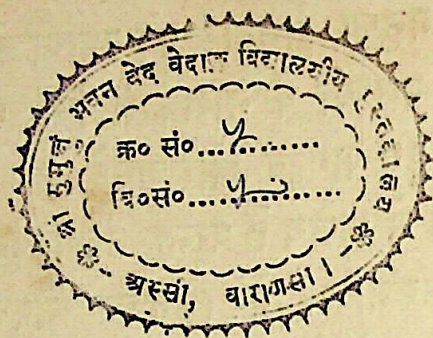 श्री मुमुक्षु भवन वेद वेदाङ्ग विद्यालयीय पुस्तकालय
क्र० सं०.............
वि०सं०..............
❀ अस्सी, वाराणसी । ❀